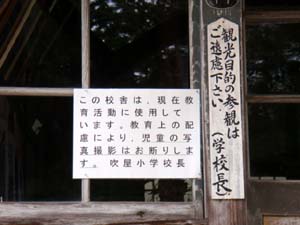 観光目的の参観は
ご遠慮下さい、
(学校長)
この校舎は、現在教
育活動に使用して
います。教育上の配
慮により、児童の写
真撮影はお断りしま
す。 吹屋小学校長